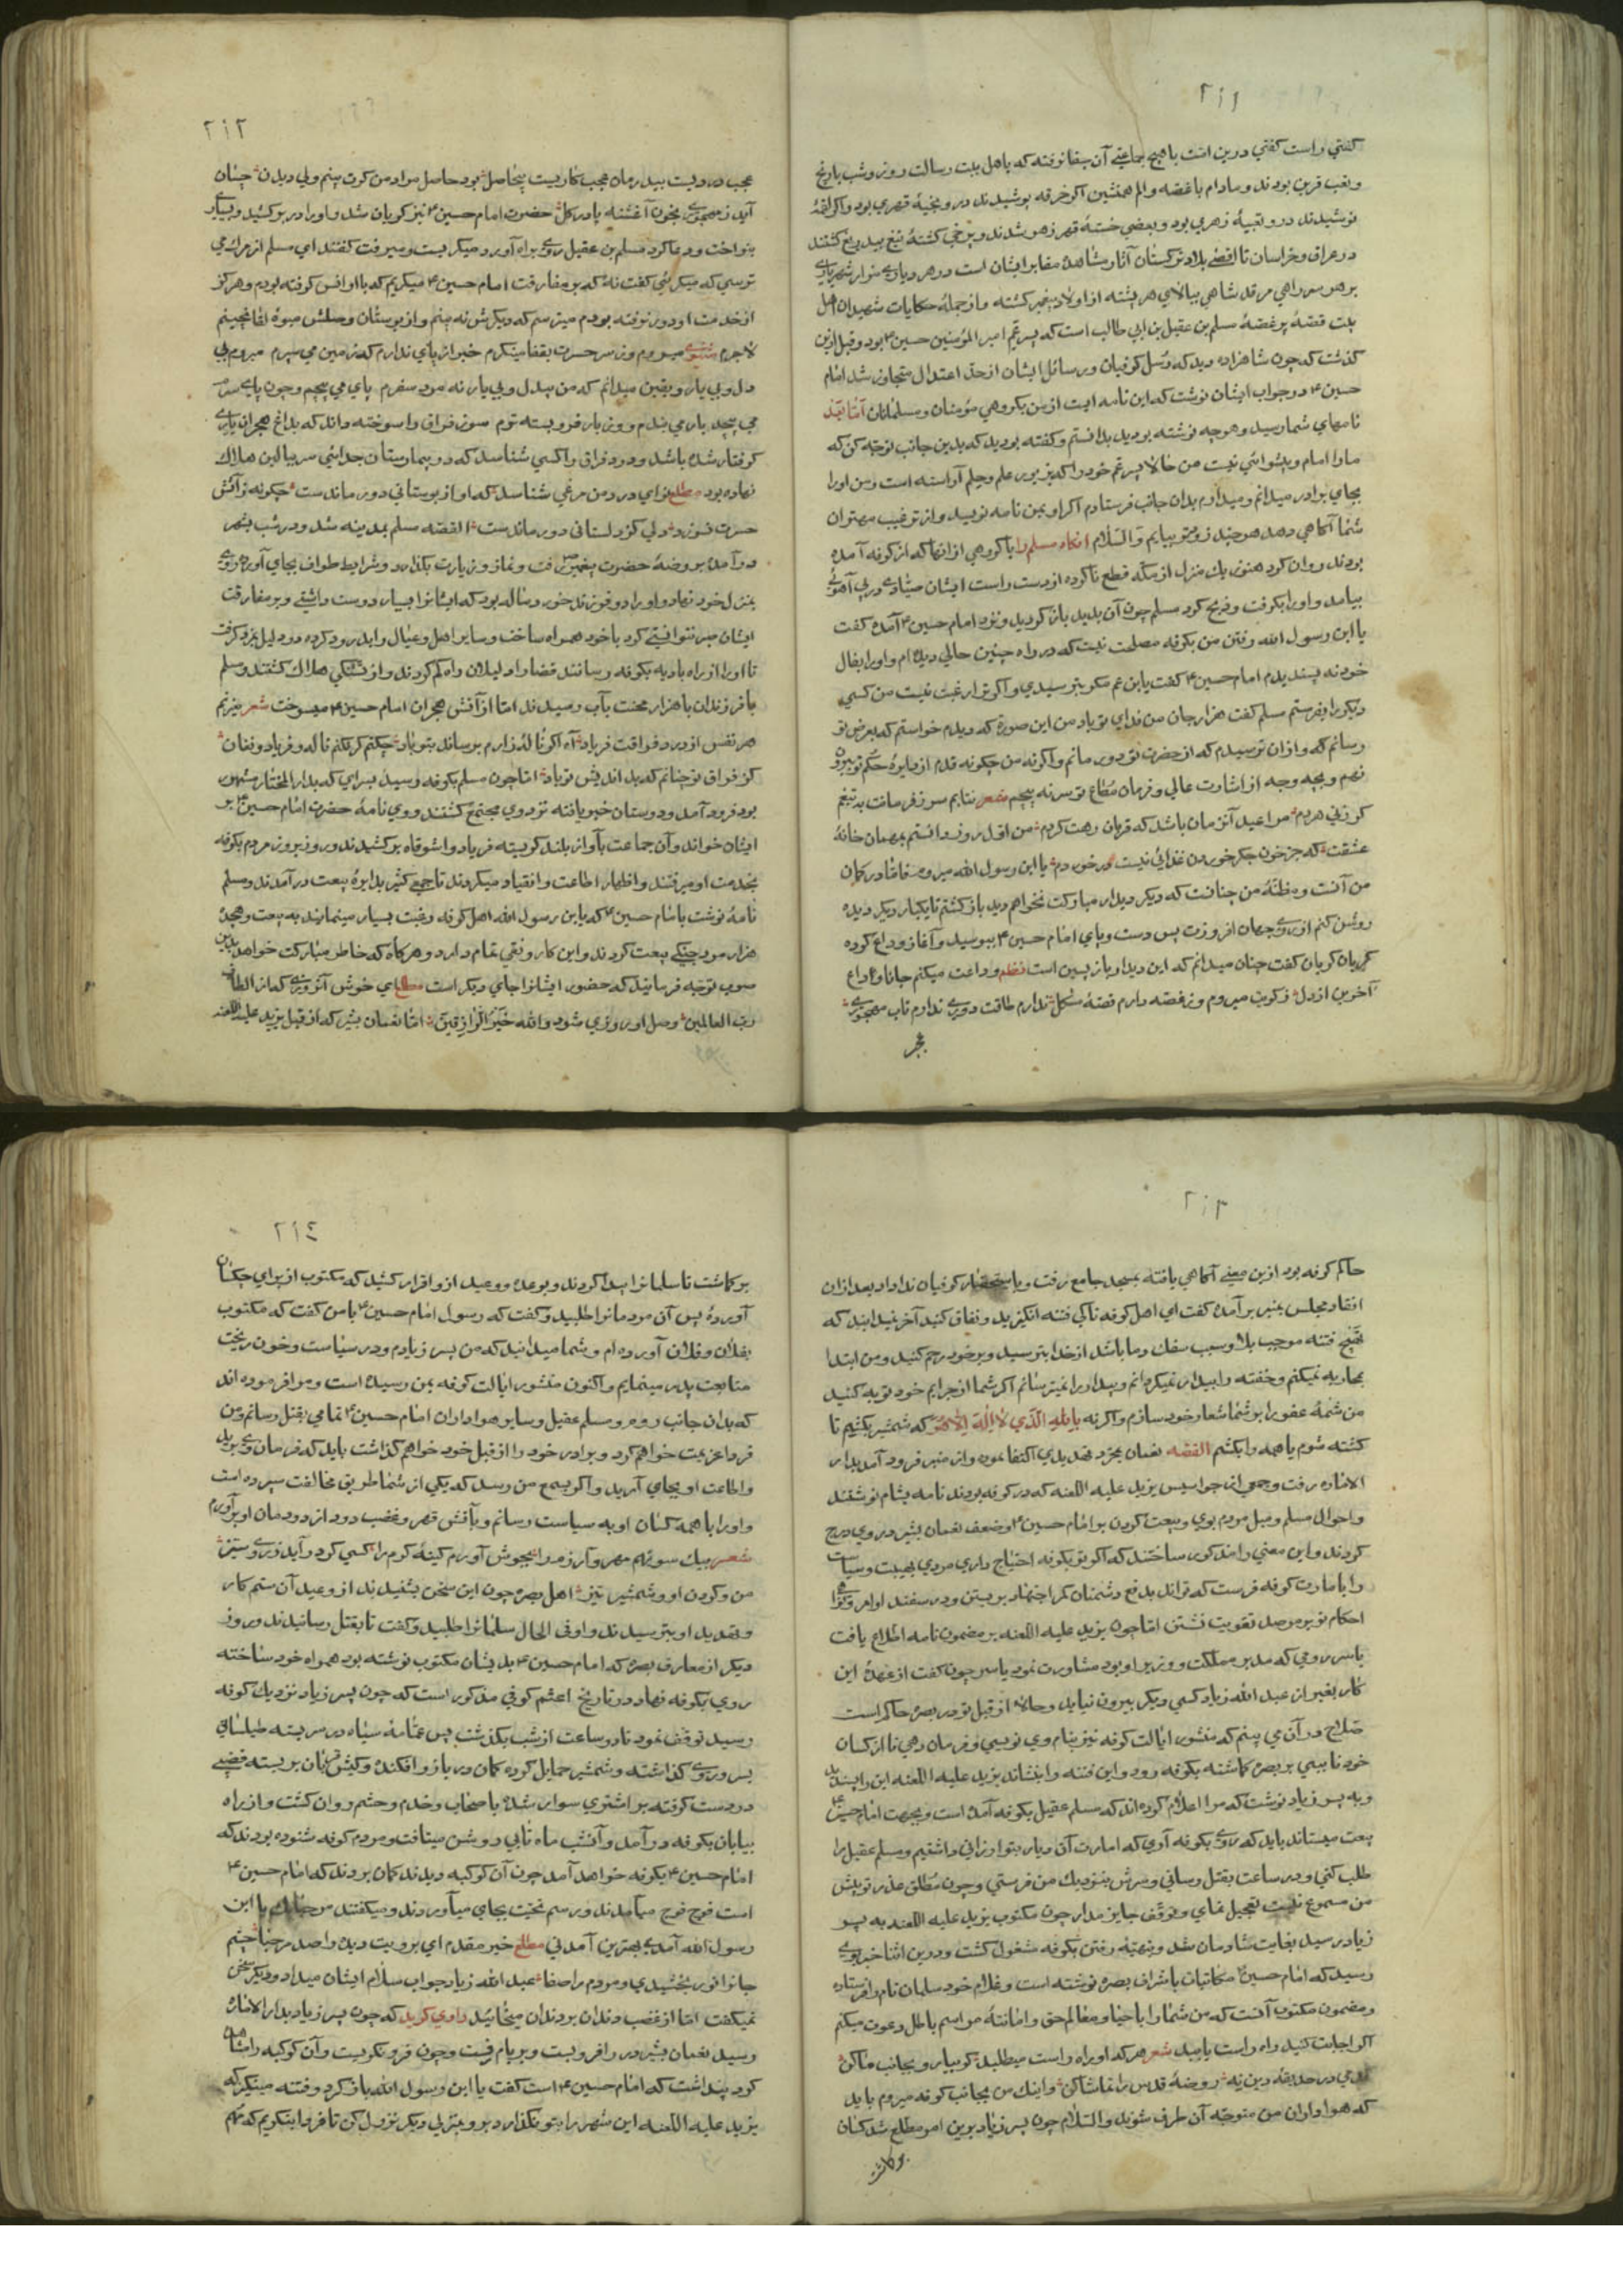 ۲۱۱
کفتي راست کفتي درین امت با هیچ جماعتي آن جفا نرفته که باهل بیت رسالت روز و شب با رنج
و تعب قرین بودند و مادام با غصه و الم همنشین اکر خرقه پوشیدند در و بخیهٔ قهري بود و اکر لقمهٔ
نوشیدند درو تعبیهٔ زهري بود و بعضي خستهٔ قهر زهر شدند و برخي کشتهٔ تیغ بیدریغ کشتند
در عراق و خراسان تا اقصي بلاد ترکستان آثار مشاهد و مقابر ایشان است در هر دیاري مزار شهریاري
بر هر سر راهي مرقد شاهي ببالاي هر پشته از اولاد پیغمبر کشته و از جملهٔ حکایات شهیدان اهل
بیت قصهٔ پر غصهٔ مسلم بن عقیل بن ابي طالب است که پسر عم امیر المؤمنین حسین بود و قبل ازین
کذشت که چون شاهزاده دید که رسل کوفیان و رسائل ایشان از حد اعتدال متجاوز شد امام
حسین در جواب ایشان نوشت که این نامه ایست از من بکروهي مؤمنان و مسلمانان اما بعد
نامهاي شما رسید و هرچه نوشته بودید بدانستم و کفته بودید که بدین جانب توجه کن که
ما را امام و پیشوائي نیست من حالا پسر عم خود را که بزیور علم و حلم آراسته است و من او را
بجاي برادر میدانم و میدارم بدان جانب فرستادم اکر او بمن نامه نویسد و از ترغیب مهتران
شما آکاهي دهد هرچند زودتر بیایم و السلام آنکاه مسلم را با کروهي از آنها که از کوفه آمده
بودند روان کرد هنوز یك منزل از مکه قطع ناکرده از دست راست ایشان صیادي در پي آهوئي
بیامد و او را بکرفت و ذبح کرد مسلم چون آن بدید باز کردید و نزد امام حسین آمده کفت
یا ابن رسول الله رفتن من بکوفه مصلحت نیست که در راه چنین حالي دیده ام و او را بفال
خود نه پسندیدم امام حسین کفت یا بن عم مکر بترسیدي و اکر ترا رغبت نیست من کسي
دیکر را بفرستم مسلم کفت هزار جان من فداي تو باد من این صورة که دیدم خواستم که بعرض تو
رسانم که و از ان ترسیدم که از حضرت تو دور مانم و اکرنه من چکونه قدم از دایرهٔ حکم تو بیرون
نهم و بچه وجه از اشارت عالي و فرمان مطاع تو سر نه پیچم شعر نتابم سر ز فرمانت به تیغم
کر زني هر دم مرا عید آن زمان باشد که قربان رهت کردم من اول روز دانستم بمهمان خانهٔ
عشقت که جز خون جکر خوردن غذائي نیست در خوردم یا ابن رسول الله میروم فاما در کمان
من آنست و مظنهٔ من چنانست که دیکر دیدار مبارکت نخواهم دید باز کشتم تا یکبار دیکر دیده
روشن کنم از روي جهان افروزت پس دست و پاي امام حسین ببوسید و آغاز وداع کرده
کریان کریان کفت چنان میدانم که این دیدار باز پسین است نظم وداعت میکنم جانا وداع
آخرین از دل ز کویت میروم وز غصه دارم قصهٔ مشکل ندارم طاقت دوري ندارم تاب مهجوري
عجب
۲۱۲
عجب دردیست بیدرمان عجب کاریست بیحاصل بود حاصل مراد من کرت بینم ولي دیدن چنان
آید ز مهجوري بخون آغشته پا در کل حضرت امام حسین نیز کریان شد و او را در بر کشید و بسیار
بنواخت و دعا کرد مسلم بن عقیل روي براه آورد و میکریست و میرفت کفتند اي مسلم از مراك مي
ترسي که میکرئي کفت نه که بر مفارقت امام حسین میکریم که با او انس کرفته بودم و هرکز
از خدمت او دور نرفته بودم میترسم که دیکرش نه بینم و از بوستان وصلش میوهٔ لقا نچینم
لاجرم مثنوي میروم وز سر حسرت بقفا مینکرم خبر از پاي ندارم که زمین مي سپرم میروم بي
دل و بي یار و یقین میدانم که من بیدل و بي یار نه مرد سفرم پاي مي پیچم و چون پاي سرم
مي پیچد بار مي بندم و وز بار فرو بسته ترم سوز فراق را سوخته داند که بداغ هجران یاري
کرفتار شده باشد و درد فراق را کسي شناسد که در بیمارستان جدائي سر ببالین هلاك
نهاده بود مطلع نواي درد من مرغي شناسد که او از بوستاني دور ماندست چکونه ز آتش
حسرت نسوزد دلي کز دلستاني دور ماندست القصه مسلم بمدینه شد و در شب بشهر
درآمده بروضهٔ حضرت پیغمبر رفت و نماز و زیارت بکذارد و شرایط طواف بجاي آورد و روي
بمنزل خود نهاد و او را دو فرزند خورد ساله بود که ایشانرا بسیار دوست داشتي و بر مفارقت
ایشان صبر نتوانستي کرد با خود همراه ساخت و سایر اهل و عیال را بدرود کرده دو دلیل بمزد کرفت
تا او را از راه بادیه بکوفه رسانند قضا را دلیلان راه کم کردند و از تشنکي هلاك کشتند و مسلم
با فرزندان با هزار محنت بآب رسیدند اما از آتش هجران امام حسین میسوخت شعر میزنم
هر نفس از درد فراقت فریاد آه اکر نالهٔ زارم برساند بتو باد چکنم کر نکنم ناله و فریاد و فغان
کز فراق تو چنانم که بداندیش تو باد اما چون مسلم بکوفه رسید بسراي که بدار المختار مشهور
بود فرود آمد و دوستان خبر یافته نزد وي مجتمع کشتند و وي نامهٔ حضرت امام حسین بر
ایشان خواند و آن جماعت بآواز بلند کریسته فریاد واشوقاه برکشیدند و روز بروز مردم بکوفه
بخدمت او میرفتند و اظهار اطاعت و انقیاد میکردند تا جمعي کثیر بدایرهٔ بیعت درآمدند و مسلم
نامهٔ نوشت بامام حسین که یا بن رسول الله اهل کوفه رغبت بسیار مینمایند به بیعت و هجده
هزار مرد جنکي بیعت کردند و این کار رونقي تمام دارد و هرکاه که خاطر مبارکت خواهد بدین
صوب توجه فرمایند که حضور ایشانرا جاي دیکر است مطلع اي خوش آنروزي که از الطاف
رب العالمین وصل او روزي شود والله خیر الرازقین اما نعمان بشیر که از قبل یزید علیه اللعنه
۲۱۳
حاکم کوفه بود ازین معني آکاهي یافته بمسجد جامع رفت و باستحضار کوفیان ندا داد بعد از ان
انقاد مجلس بمنبر برآمده کفت اي اهل کوفه تا کي فتنه انکیزید و نفاق کنید آخر نمیدانید که
تهییج فتنه موجب بلا و سبب سفك دما باشد از خدا بترسید و بر خود رحم کنید و من ابتدا
بمحاربه نمیکنم و خفته را بیدار نمیکردانم و بیدار را نمیترسانم اکر شما از جرایم خود توبه کنید
من شمهٔ عفو را بر شما شعار خود سازم و اکرنه بالله الذي لا اله الا هو که شمشیر بکشم تا
کشته شوم یا همه را بکشم القصه نعمان بمجرد تهدیدي اکتفا نموده از منبر فرود آمد بدار
الاماره رفت و جمعي از جواسیس یزید علیه اللعنه که در کوفه بودند نامه بشام نوشتند
و احوال مسلم و میل مردم بوي و بیعت کردن بر امام حسین و ضعف نعمان بشیر در وي درج
کردند و این معني را مذکور ساختند که اکر تو بکوفه احتیاج داري مردي بهیبت و سیاست
را بامارت کوفه فرست که تواند بدفع دشمنان کمر اجتهاد بر بستن و در سفتند اوامر و قوا
احکام تو بر موصد تقویت نشستن اما چون یزید علیه اللعنه بر مضمون نامه اطلاع یافت
با سرروجي که مدبر مملکت و وزیر او بود مشاورت نمود یا سرجون کفت از عهدهٔ این
کار بغیر از عبد الله زیاد کسي دیکر بیرون نیاید و حالا از قبل تو در بصره حاکم است
صلاح در آن مي بینم که منشور ایالت کوفه نیز بنام وي نویسي و فرمان دهي تا از کسان
خود نایبي بر بصره کماشته بکوفه رود و این فتنه را بنشاند یزید علیه اللعنه این را پسندید
و به پسر زیاد نوشت که مرا اعلام کرده اند که مسلم عقیل بکوفه آمده است و بجهت امام حسین
بیعت میستاند باید که روي بکوفه آري که امارت آن دیار بتو ارزاني داشتیم و مسلم عقیل را
طلب کني و در ساعت بقتل رساني و سرش بنزدیك من فرستي و چون مطلق عذر تو پیش
من مسموع نیست تعجیل نماي و توقف جایز مدار چون مکتوب یزید علیه اللعنه به پسر
زیاد رسید بغایت شادمان شد و بتهیهٔ رفتن بکوفه مشغول کشت و درین اثنا خبر بوي
رسید که امام حسین مکاتبات باشراف بصره نوشته است و غلام خود سلمان نام را فرستاده
و مضمون مکتوب آنست که من شما را باحیاء معالم حق و اماتهٔ مراسم باطل دعوت میکنم
اکر اجابت کنید راه راست یابید شعر هر که او راه راست میطلبد کو بیا رو بجانب ما کن
قدمي در حدیقهٔ دین نه روضهٔ قدس را تماشا کن و اینك من بجانب کوفه میروم باید
که هواداران من متوجه آن طرف شوید والسلام چون پسر زیاد برین امر مطلع شد کسان
بر کماشت
۲۱٤
بر کماشت تا سلمانرا پیدا کردند و بوعده و وعید ازو اقرار کشید که مکتوب از براي چکسان
آورده پس آن مردمانرا طلبید و کفت که رسول امام حسین با من کفت که مکتوب
بفلان و فلان آورده ام و شما میدانید که من پسر زیادم و در سیاست و خون ریخت
متابعت پدر مینمایم و اکنون منشور ایالت کوفه بمن رسیده است و مرا فرموده اند
که بدان جانب روم و مسلم عقیل و سایر هواداران امام حسین تمامي بقتل رسانم و من
فردا عزیمت خواهم کرد و برادر خود را از قبل خود خواهم کذاشت باید که فرمان وي برید
و اطاعت او بجاي آرید و اکر بسمع من رسد که یکي از شما طریق مخالفت سپرده است
و او را با همه کسان او به سیاست رسانم و بآتش قهر و غضب دود از دودمان او برآورم
شعر بیك سو نهم مهر و آزرم را بجوش آورم کینهٔ کرم را کسي کو درآید ز روي ستیز
من و کردن او و شمشیر تیز اهل بصره چون این سخن بشنیدند از وعید آن ستم کار
و تهدید او بترسیدند و او في الحال سلمانرا طلبید و کفت تا بقتل رسانیدند و روز
دیکر از معارف بصره که امام حسین بدیشان مکتوب نوشته بود همراه خود ساخته
روي بکوفه نهاد در تاریخ اعثم کوفي مذکور است که چون پسر زیاد نزدیك کوفه
رسید توقف نمود تا دو ساعت از شب بکذشت پس عمامهٔ سیاه در سر بسته طیلساني
بسر و روي کذاشته و شمشیر حمایل کرده کمان در بازو افکنده و کیش بر میان بر بسته قضیبي
در دست کرفته بر اشتري سوار شده با صحاب و خدم و حشم روان کشت و از راه
بیابان بکوفه درآمد و آنشب ماه تابي روشن میتافت و مردم کوفه شنوده بودند که
امام حسین بکوفه خواهد آمد چون آن کوکبه دیدند کمان بردند که امام حسین
است فوج فوج میآمدند و رسم تحیت بجاي میآوردند و میکفتند مرحبا بك یا ابن
رسول الله آمدي بهترین آمدني مطلع خیر مقدم اي برویت دیده را صد مرحبا چشم
جانرا نور بخشیدي و مردم را صفا عبد الله زیاد جواب سلام ایشان میداد و دیکر سخن
نمیکفت اما از غضب دندان بر دندان میخائید راوي کوید که چون پسر زیاد بدار الاماره
رسید نعمان بشیر در را فرو بست و بر بام رفت و چون فرو نکریست و آن کوکبه را مشاهده
کرد پنداشت که امام حسین است کفت یا ابن رسول الله باز کرد و فتنه مینکیز که
یزید علیه اللعنه این شهر را بتو نکذارد برو و بمنزلي دیکر نزول کن تا فردا بنکریم که مهم